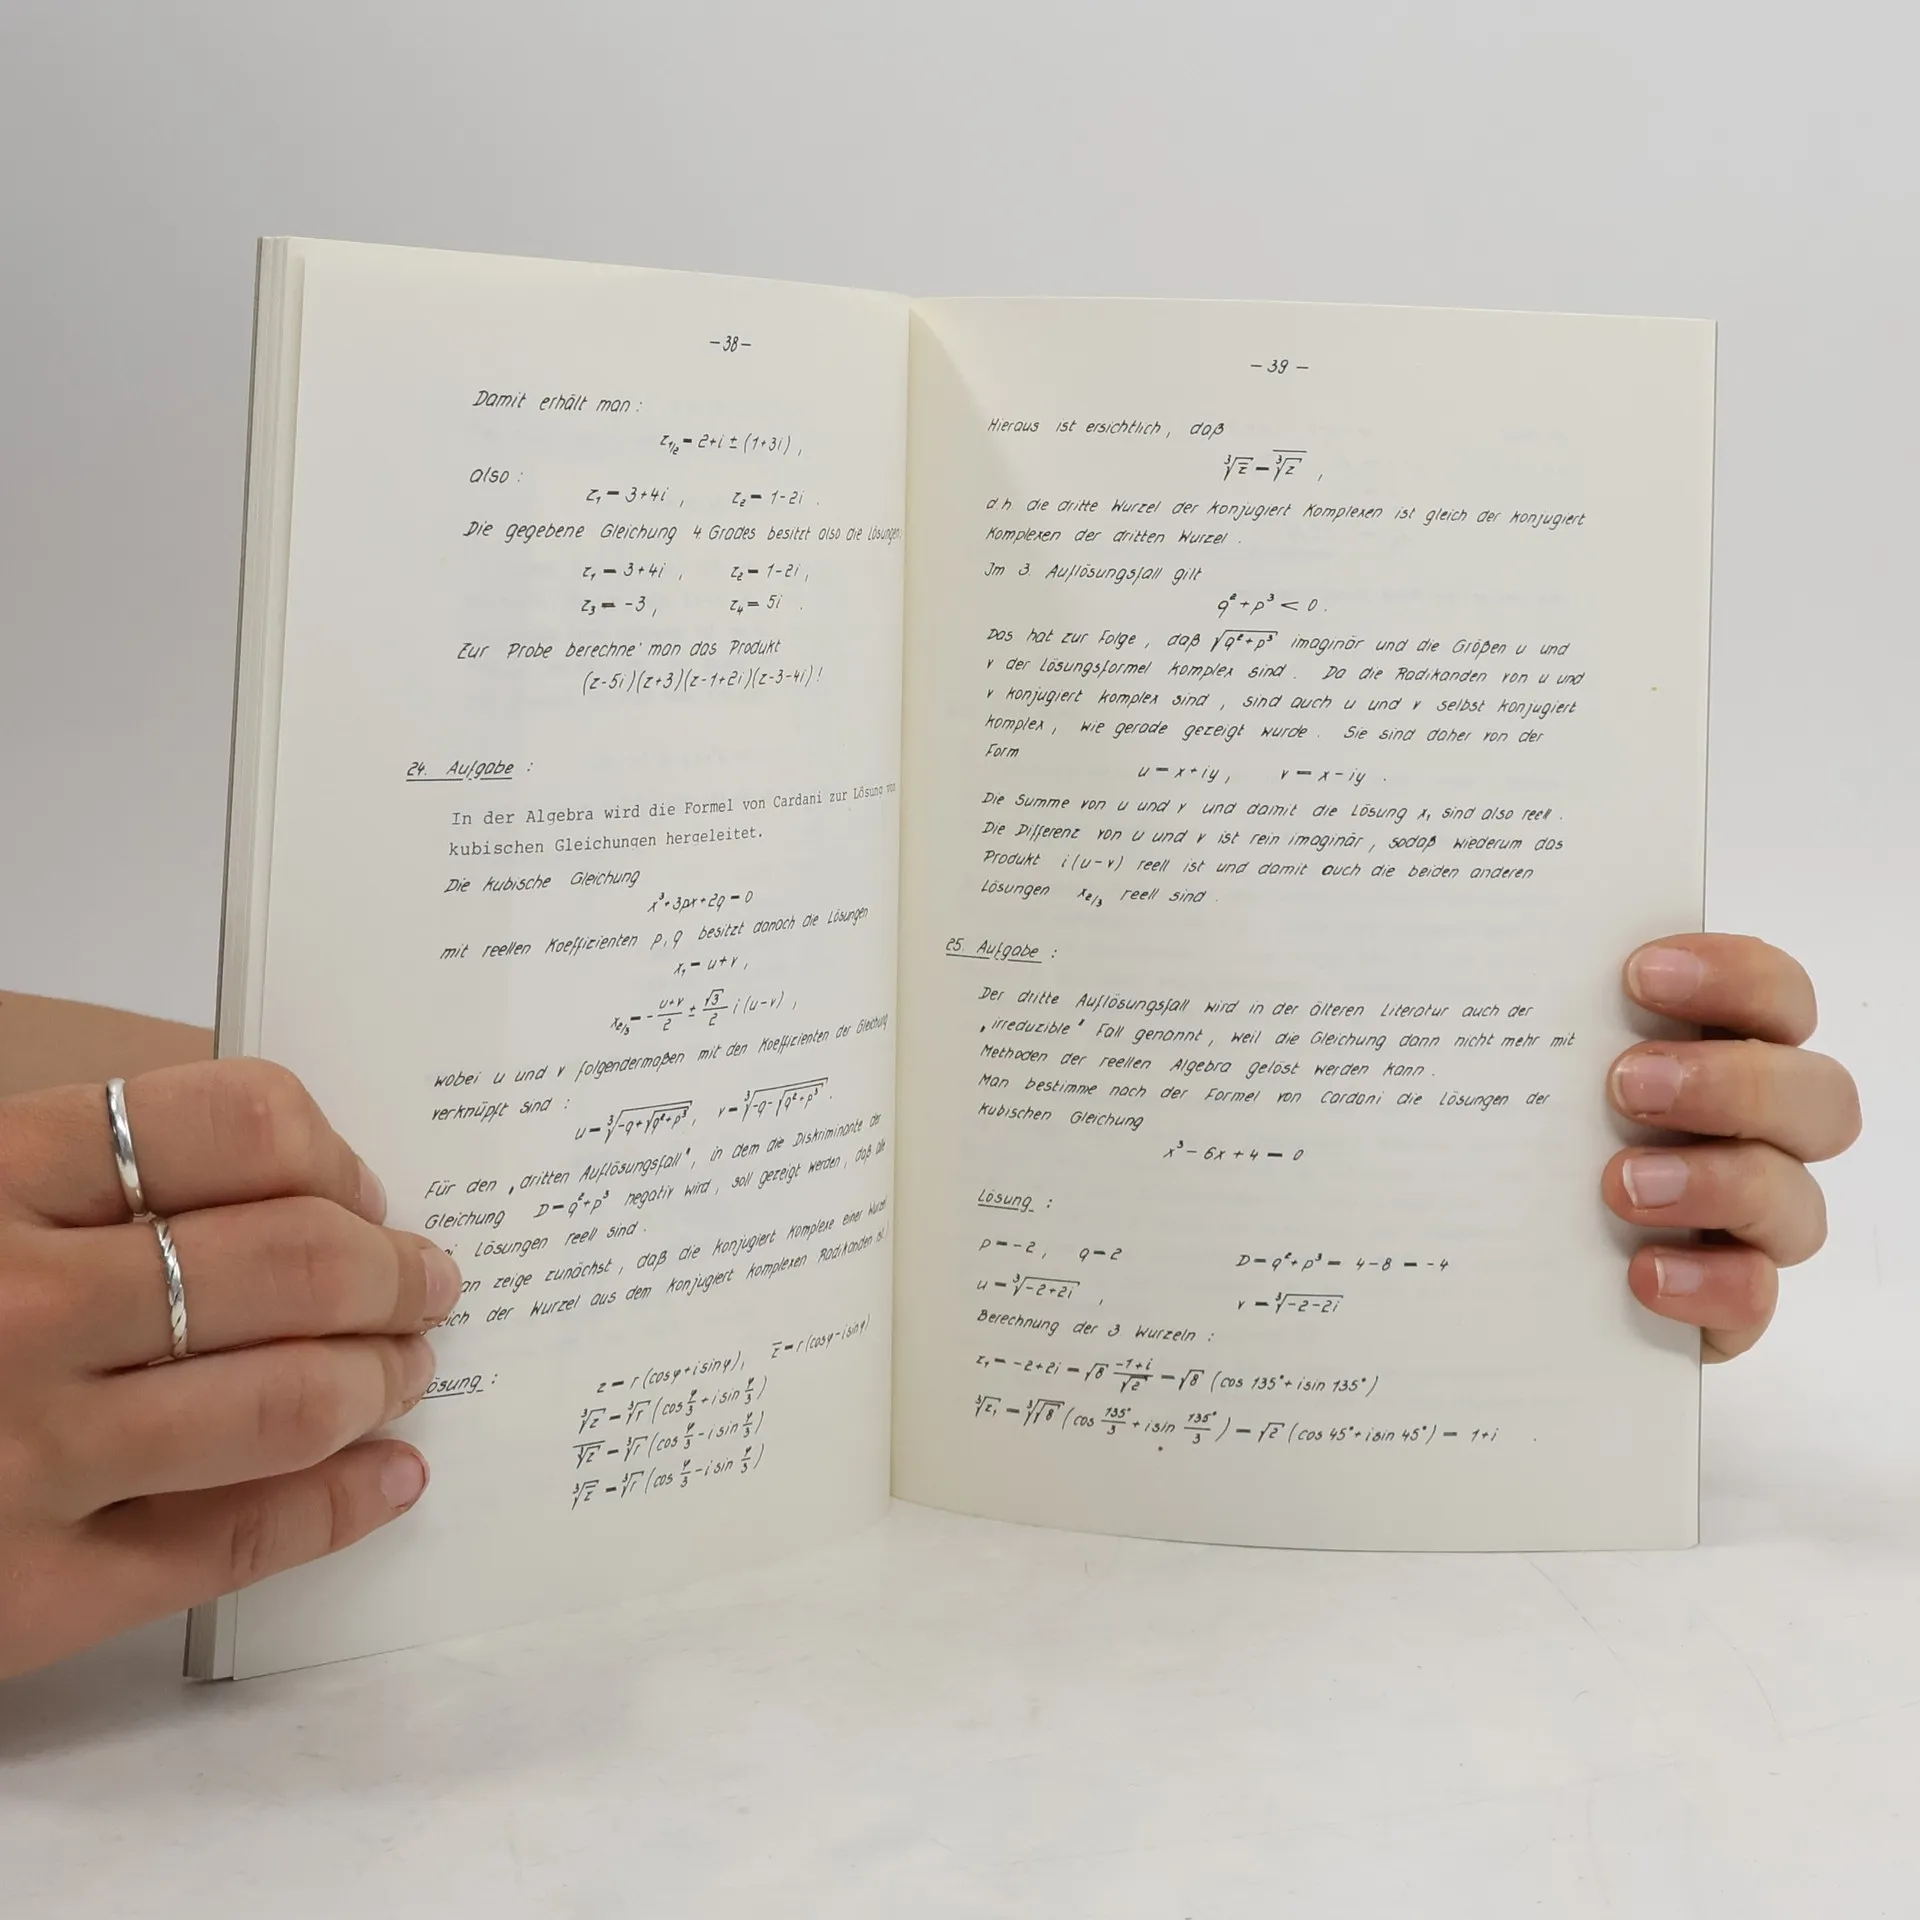 -38-
Damit erhält man :
z₁/₂ = 2+i ± (1+3i) ,
also :
z₁ = 3+4i , z₂ = 1-2i .
Die gegebene Gleichung 4. Grades besitzt also die Lösungen:
z₁ = 3+4i , z₂ = 1-2i ,
z₃ = -3 , z₄ = 5i .
Zur Probe berechne man das Produkt
(z-5i)(z+3)(z-1+2i)(z-3-4i) !
24. Aufgabe :
In der Algebra wird die Formel von Cardani zur Lösung von
kubischen Gleichungen hergeleitet.
Die kubische Gleichung
x³+3px+2q = 0
mit reellen Koeffizienten p, q besitzt danach die Lösungen
x₁ = u+v ,
x₂/₃ = - (u+v)/2 ± √3/2 i (u-v) ,
wobei u und v folgendermaßen mit den Koeffizienten der Gleichung
verknüpft sind :
u = ∛(-q+√(q²+p³)) , v = ∛(-q-√(q²+p³)) .
Für den „dritten Auflösungsfall", in dem die Diskriminante der
Gleichung D = q²+p³ negativ wird, soll gezeigt werden, daß alle
Lösungen reell sind .
zeige zunächst, daß die konjugiert Komplexe einer Wurzel
der Wurzel aus dem konjugiert komplexen Radikanden ist.)
ösung :
z = r (cosφ + i sinφ), z̅ = r (cosφ - i sinφ)
∛z = ∛r (cos φ/3 + i sin φ/3)
∛z̅ = ∛r (cos φ/3 - i sin φ/3)
∛z̅ = ∛r (cos φ/3 - i sin φ/3)
- 39 -
Hieraus ist ersichtlich, daß
∛z̅ = ∛z̅ ,
d.h. die dritte Wurzel der konjugiert Komplexen ist gleich der konjugiert
Komplexen der dritten Wurzel .
Im 3. Auflösungsfall gilt
q²+p³ < 0 .
Das hat zur Folge, daß √(q²+p³) imaginär und die Größen u und
v der Lösungsformel komplex sind . Da die Radikanden von u und
v konjugiert komplex sind , sind auch u und v selbst konjugiert
komplex , wie gerade gezeigt wurde . Sie sind daher von der
Form
u = x+iy , v = x-iy .
Die Summe von u und v und damit die Lösung x₁ sind also reell .
Die Differenz von u und v ist rein imaginär, sodaß wiederum das
Produkt i (u-v) reell ist und damit auch die beiden anderen
Lösungen x₂/₃ reell sind .
25. Aufgabe :
Der dritte Auflösungsfall wird in der älteren Literatur auch der
„irreduzible" Fall genannt, weil die Gleichung dann nicht mehr mit
Methoden der reellen Algebra gelöst werden kann .
Man bestimme nach der Formel von Cardani die Lösungen der
kubischen Gleichung
x³ - 6x + 4 = 0
Lösung :
p = -2 , q = 2 D = q²+p³ = 4-8 = -4
u = ∛(-2+2i) , v = ∛(-2-2i)
Berechnung der 3. Wurzeln :
z₁ = -2+2i = √8 (-1+i)/√2 = √8 (cos 135° + i sin 135°)
∛z₁ = ∛√8 (cos 135°/3 + i sin 135°/3) = √2 (cos 45° + i sin 45°) = 1+i .